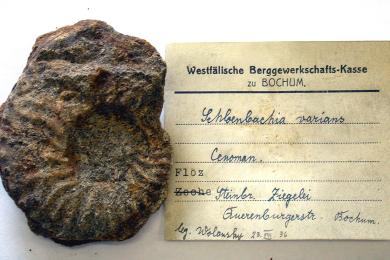 Westfälische Berggewerkschafts-Kasse
zu BOCHUM.
Schloenbachia varians
Cenoman.
Flöz
Zeche Steinbr. Ziegelei
Querenburgerstr. Bochum.
leg. Wolansky 23. VII 36